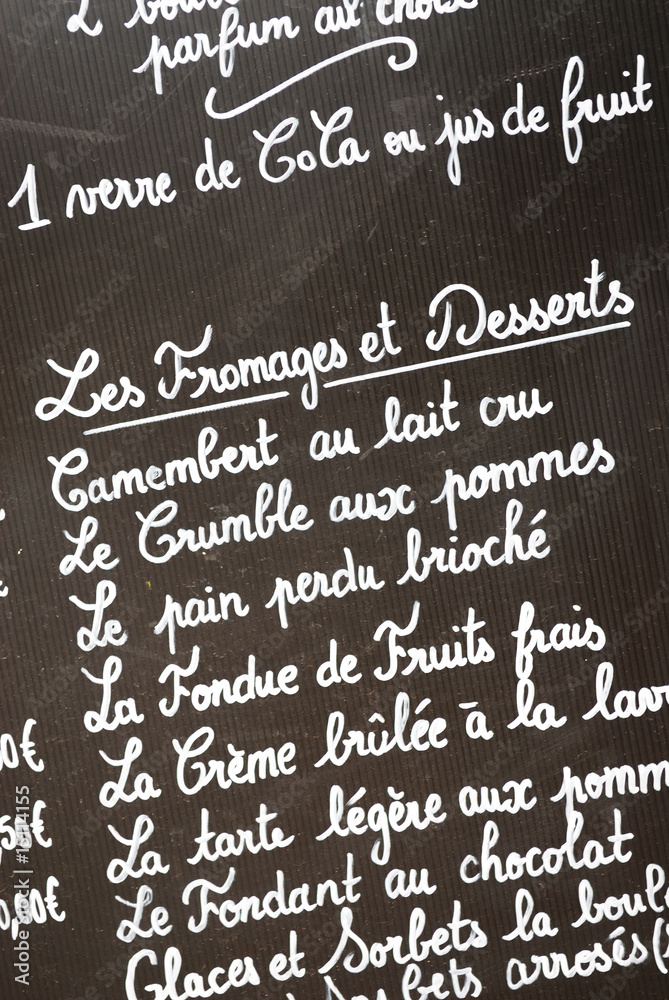 2
parfum au choix
1 verre de CoCa ou jus de fruit
Les Fromages et Desserts
Camembert au lait cru
Le Crumble aux pommes
Le pain perdu brioché
La Fondue de Fruits frais
La Crème brûlée à la lav
La tarte légère aux pomm
Le Fondant au chocolat
Glaces et Sorbets la boul
bets arrosés
0€
,5€
0,80€